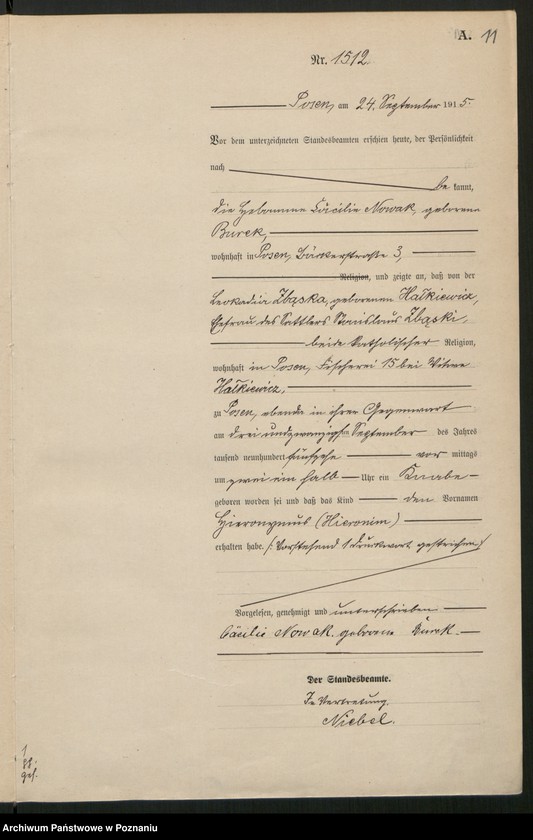 A. 11
Nr. 1512.
Posen, am 24. September 1915.
Vor dem unterzeichneten Standesbeamten erschien heute, der Persönlichkeit
nach
be kannt,
die Hebamme Cäcilie Nowak, geborene
Burek,
wohnhaft in Posen, Bäckerstraße 3,
Religion, und zeigte an, daß von der
Leokadia Zbąska, geborenen Hałkiewicz,
Ehefrau des Sattlers Stanislaus Zbąski,
beide katholischer Religion,
wohnhaft in Posen, Fischerei 15 bei Witwe
Hałkiewicz,
zu Posen, ebenda in ihrer Gegenwart
am drei und zwanzigsten September des Jahres
tausend neunhundert fünfzehn vor mittags
um zwei ein halb Uhr ein Knabe
geboren worden sei und daß das Kind den Vornamen
Hieronymus (Hieronim)
erhalten habe. (: Vorstehend 1 Druckwort gestrichen :)
Vorgelesen, genehmigt und unterschrieben
Cäcilie Nowak geborene Burek
Der Standesbeamte.
In Vertretung.
Niebel.
Archiwum Państwowe w Poznaniu